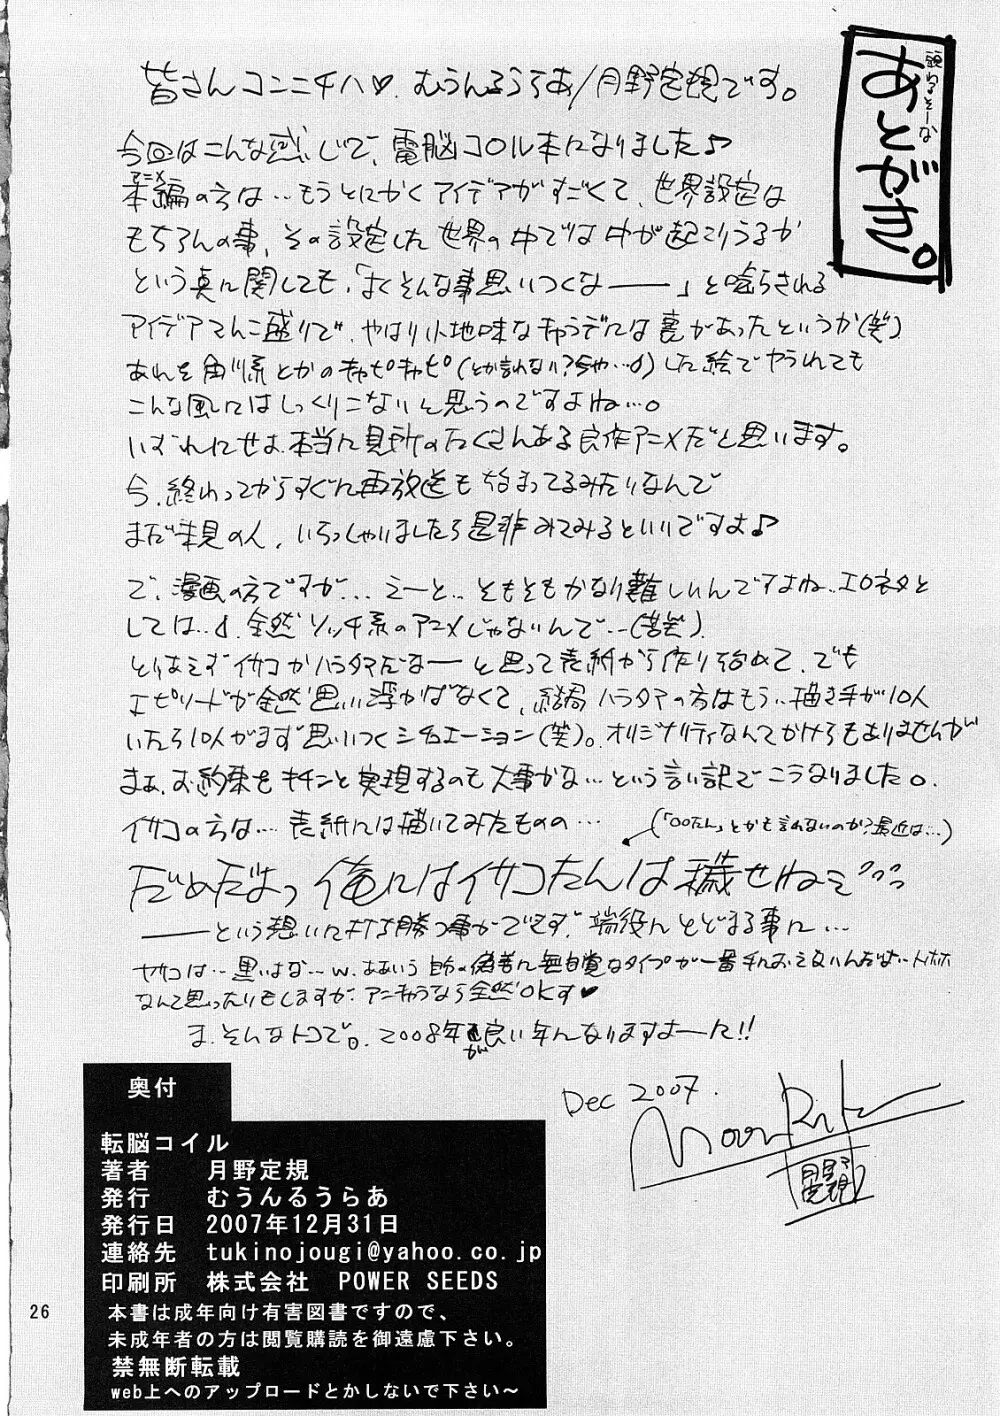 あとがき。
皆さんコンニチハ♥. むうんるうらあ/月野定規です。
今回はこんな感じで、電脳コイル本になりました♪
本編の方は…もうとにかくアイデアがすごくて、世界設定は
アニメ
もちろんの事、その設定した世界の中では何が起こりうるか
という点に関しても、「よくそんな事思いつくなー」と唸らされる
アイデアてんこ盛りで、やはり地味なキャラデには裏があったというか(笑)
あれを角川系とかのキャピキャピ(とか言わない?今や…)した絵でやられても
こんな風にはしっくりこないと思うのですよね…。
いずれにせよ、本当に見所のたくさんある良作アニメだと思います。
今、終わってからすぐに再放送も始まってるみたいなんで
まだ未見の人、いらっしゃいましたら是非みてみるといいですよ♪
で、漫画の方ですが…えーと…そもそもかなり難しいんですよね…エロネタと
しては…。全然ソッチ系のアニメじゃないんで…(苦笑).
とりあえずイサコかハラケンだなーと思って表紙から作り始めて、でも
エピソードが全然思い浮かばなくて、結局の方はもう…描き手が10人
いたら10人がまず思いつくシチュエーション(笑)。オリジナリティなんてかけらもありませんが
まぁ、お約束をキチンと実現するのも大事かな…という言い訳でこうなりました。
イサコの方は…表紙には描いてみたものの…
(「○○たん」とかも言わないのか?最近は…)
だめだよっ 俺にはイサコたんは穢せねぇ
――という想いに打ち勝つ事ができず、端役にとどまる事に…
ヤサコは…黒いよな…w. ああいう自分の偽善に無自覚なタイプが一番手におえないんだよ…トホホ
なんて思ったりもしますが、アニキャラなら全然OKす♥
ま、そんなトコで。2008年が良い年になりますよーに!!
Dec 2007.
MoonRuler
月野定規
奥付
転脳コイル
著者 月野定規
発行 むうんるうらあ
発行日 2007年12月31日
連絡先 tukinojougi@yahoo.co.jp
印刷所 株式会社 POWER SEEDS
本書は成年向け有害図書ですので、
未成年者の方は閲覧購読を御遠慮下さい。
禁無断転載
web上へのアップロードとかしないで下さい～
26